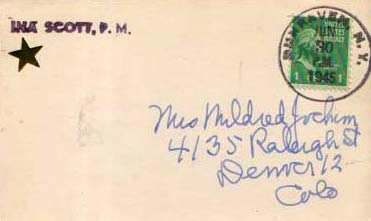 INA SCOTT, P. M.
N. Y.
JUN
30
M.
1945
UNITED STATES
1 1
Mrs Mildred Jochim
4135 Raleigh St
Denver 12
Colo